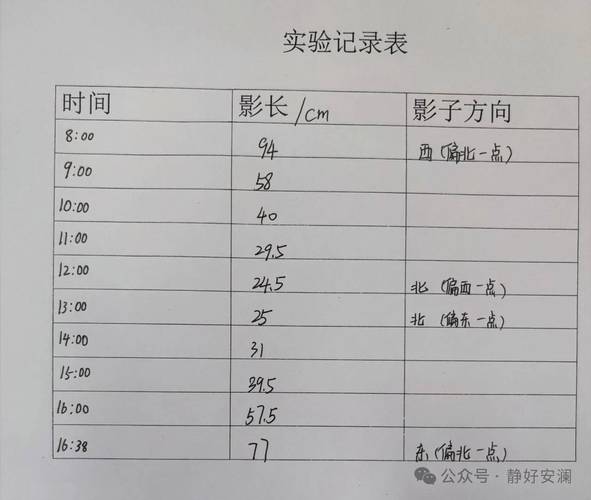 实验记录表
时间 影长/cm 影子方向
8:00 94 西(偏北一点)
9:00 58
10:00 40
11:00 29.5
12:00 24.5 北(偏西一点)
13:00 25 北(偏东一点)
14:00 31
15:00 39.5
16:00 57.5
16:38 77 东(偏北一点)
公众号·静好安澜